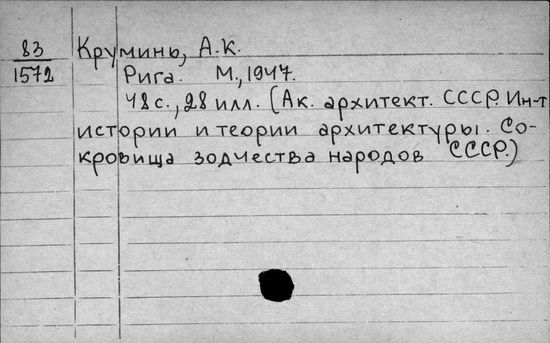 83 Круминь, А.К.
1572 Рига. М., 1947.
48 с., 28 илл. (Ак. архитект. СССР. Ин-т
истории и теории архитектуры. Со-
кровища зодчества народов СССР.)